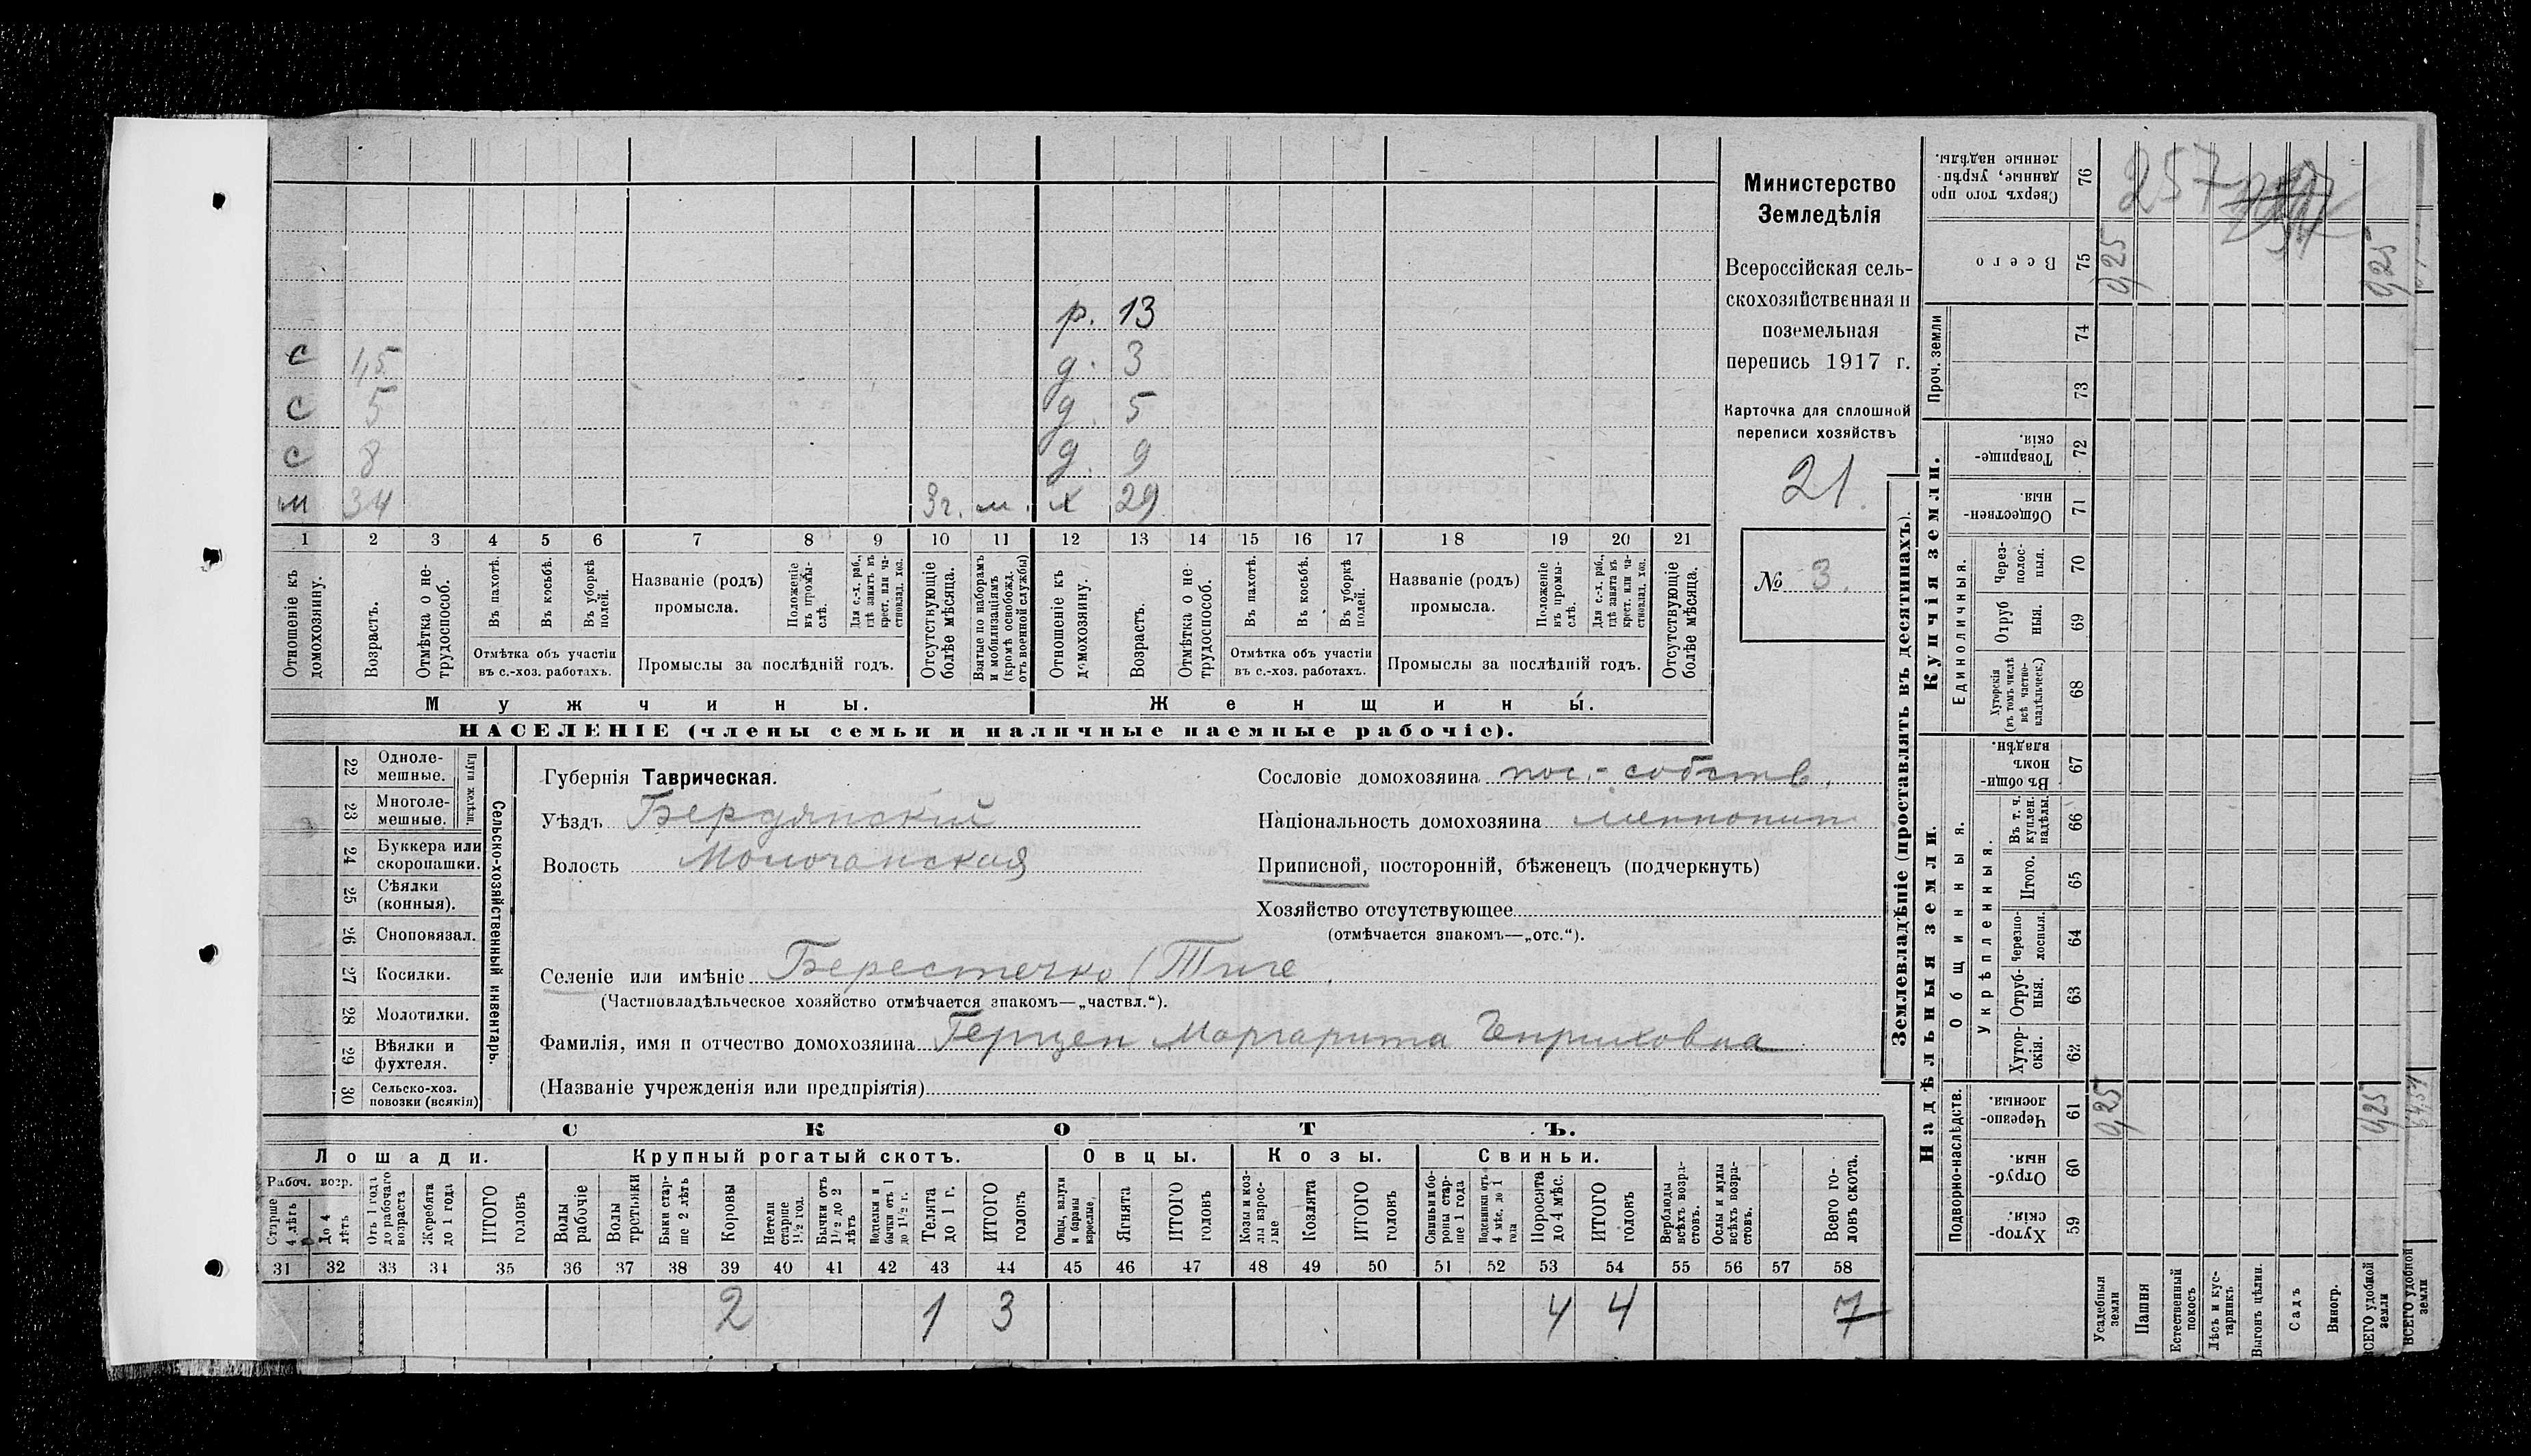 р. 13
с 1,5 д. 3
с 5 д. 5
с 8 д. 9
м 34 3г. м. х 29
1 2 3 4 5 6 7 8 9 10 11 12 13 14 15 16 17 18 19 20 21
Отношеніе къ домохозяину.
Возрастъ.
Отмѣтка о не-трудоспособ.
Въ пахотѣ.
Въ косьбѣ.
Въ уборкѣ полей.
Отмѣтка объ участіи
въ с.-хоз. работахъ.
Названіе (родъ)
промысла.
Положеніе въ промы-слѣ.
Для с.-х. раб., гдѣ занятъ въ крест. или ча-стновлад. хоз.
Промыслы за послѣдній годъ.
Отсутствующіе болѣе мѣсяца.
Взятые по наборамъ и мобилизаціямъ (кромѣ освобожд. отъ военной службы)
Отношеніе къ домохозяину.
Возрастъ.
Отмѣтка о не-трудоспособ.
Въ пахотѣ.
Въ косьбѣ.
Въ уборкѣ полей.
Отмѣтка объ участіи
въ с.-хоз. работахъ.
Названіе (родъ)
промысла.
Положеніе въ промы-слѣ.
Для с.-х. раб., гдѣ занята въ крест. или ча-стновлад. хоз.
Промыслы за послѣдній годъ.
Отсутствующіе болѣе мѣсяца.
Мужчины. Женщины.
НАСЕЛЕНІЕ (члены семьи и наличные наемные рабочіе).
Министерство
Земледѣлія
Всероссійская сель-
скохозяйственная и
поземельная
перепись 1917 г.
Карточка для сплошной
переписи хозяйствъ
21.
№ 3.
Сельско-хозяйственный инвентарь.
Плуги желѣзн.
22 Одноле-мешные.
23 Многоле-мешные.
24 Буккера или скоропашки.
25 Сѣялки (конныя).
26 Сноповязал.
27 Косилки.
28 Молотилки.
29 Вѣялки и фухтеля.
30 Сельско-хоз. повозки (всякія)
Губернія Таврическая.
Уѣздъ Бердянскій
Волость Молочанская
Сословіе домохозяина пос.-собств.
Національность домохозяина меннонит
Приписной, посторонній, бѣженецъ (подчеркнуть)
Хозяйство отсутствующее
(отмѣчается знакомъ—„отс.“).
Селеніе или имѣніе Берестечко (Тиге
(Частновладѣльческое хозяйство отмѣчается знакомъ—„частвл.“).
Фамилія, имя и отчество домохозяина Герцен Маргарита Генриховна
(Названіе учрежденія или предпріятія)
СКОТЪ.
Лошади. Крупный рогатый скотъ. Овцы. Козы. Свиньи.
Рабоч. возр.
Старше 4 лѣтъ
До 4 лѣтъ
Отъ 1 года до рабочаго возраста
Жеребята до 1 года
ИТОГО головъ
Волы рабочіе
Волы
Быки стар-ше 2 лѣтъ
Коровы
Нетели старше 1½ год.
Бычки отъ 1½ до 2 лѣтъ
бычки отъ 1 до 1½ г.
Телята до 1 г.
ИТОГО головъ
Овцы, валухи и бараны взрослые
Ягнята
ИТОГО головъ
Козы и коз-лы взрос-лые
Козлята
ИТОГО головъ
Свиньи и бо-ровы стар-ше 1 года
Подсвинки отъ 4 мѣс. до 1 года
Поросята до 4 мѣс.
ИТОГО головъ
Верблюды всѣхъ возра-стовъ.
Ослы и мулы всѣхъ возра-стовъ.
Всего го-ловъ скота.
31 32 33 34 35 36 37 38 39 40 41 42 43 44 45 46 47 48 49 50 51 52 53 54 55 56 57 58
2 1 3 4 4 7
Землевладѣніе (проставлять въ десятинахъ).
Купчія земли.
Надѣльныя земли.
76 Сверхъ того про данные, укрѣп-ленные надѣлы.
257
75 Всего
9,25 9,25
Проч. земли
74
73
72 Товарище-скія.
71 Обществен-ныя.
Единоличныя.
70 Через-полос-ныя.
69 Отруб ныя.
68 Хуторскія (въ томъ числѣ всѣ частно-владѣльческ.)
Общинныя.
67 Въ общи-номъ владѣн.
Укрѣпленныя.
66 Въ т. ч. куплен. надѣлы.
65 Итого.
64 Черезпо-лосныя.
63 Отруб-ныя.
62 Хутор-скія.
Подворно-наслѣдств.
61 Черезпо-лосныя.
9,25 9,25
60 Отруб-ныя.
59 Хутор-скія.
Усадебныя земли
Пашня
Естественный покосъ
Лѣсъ и кус-тарникъ
Выгонъ цѣлин.
Садъ
Виногр.
ВСЕГО удобной земли
ВСЕГО удобной земли